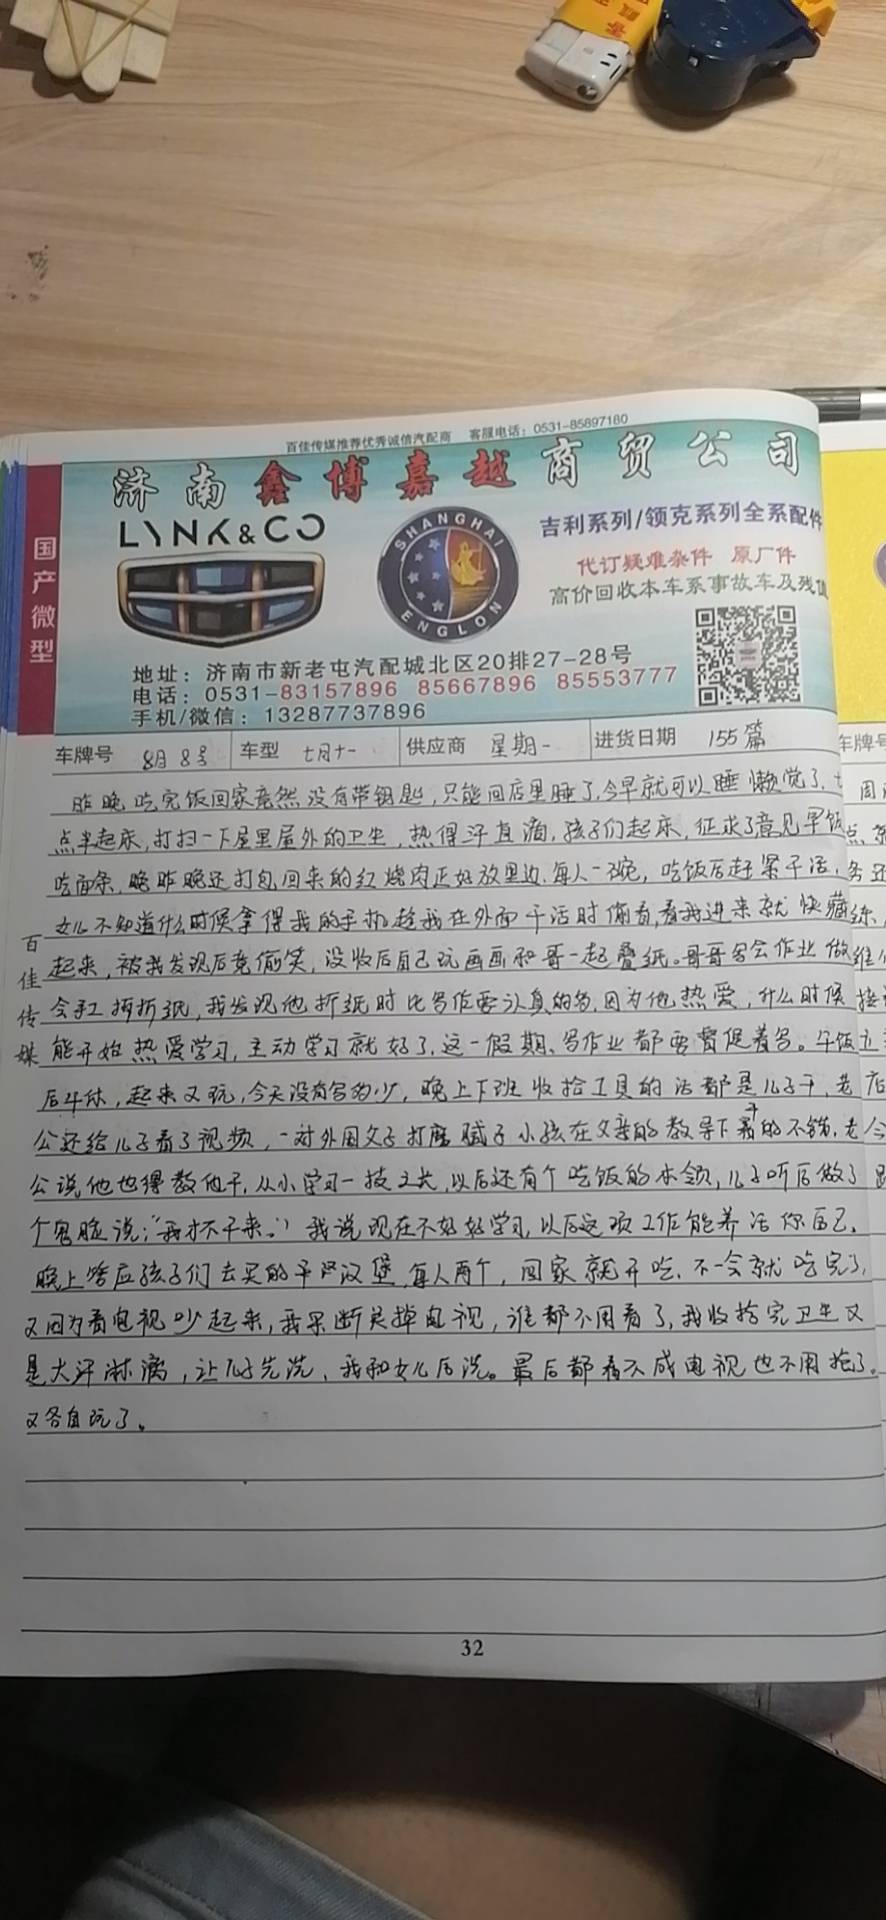 百佳传媒推荐优秀诚信汽配商 客服电话：0531-85897180
济南鑫博嘉越商贸公司
国产微型
LYNK&CO
SHANGHAI
ENGLON
吉利系列/领克系列全系配件
代订疑难杂件 原厂件
高价回收本车系事故车及残
地址：济南市新老屯汽配城北区20排27-28号
电话：0531-83157896 85667896 85553777
手机/微信：13287737896
车牌号 8月8号 车型 七月十一 供应商 星期一 进货日期 155篇
昨晚吃完饭回家竟然没有带钥匙，只能回店里睡了，今早就可以睡懒觉了，七
点半起床，打扫一下屋里屋外的卫生，热得汗直滴，孩子们起床，征求了意见早饭
吃面条，晚昨晚还打包回来的红烧肉正好放里边，每人一碗，吃饭后赶紧干活，
女儿不知道什么时候拿得我的手机趁我在外面干活时偷看，看我进来就快藏
起来，被我发现后竟偷笑，没收后自己玩画画和哥一起叠纸。哥哥写会作业做
会手工折纸，我发现他折纸时比写作要认真的多，因为他热爱，什么时候
能开始热爱学习，主动学习就好了，这一假期、写作业都要督促着写。午饭
后午休，起来又玩，今天没有写多少，晚上下班收拾工具的活都是儿子干，老
公还给儿子看了视频，一对外国父子打磨腻子小孩在父亲的教导下干的不错，老
公说他也得教他干，从小学习一技之长，以后还有个吃饭的本领，儿子听后做了
个鬼脸说：“我才不干来。”我说现在不好好学习，以后这项工作能养活你自己。
晚上答应孩子们去买的平民汉堡，每人两个，回家就开吃，不一会就吃完了，
又因为看电视吵起来，我果断关掉电视，谁都不用看了，我收拾完卫生又
是大汗淋漓，让儿子先洗，我和女儿后洗。最后都看不成电视也不用抢了。
又各自玩了。
百佳传媒
32
车牌号